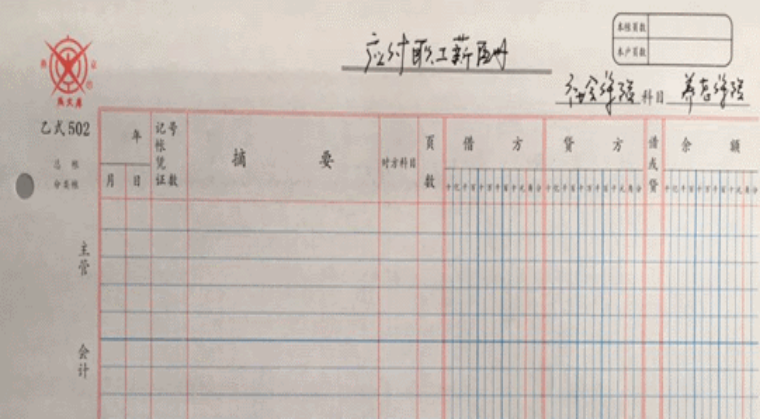 应付职工薪酬
本帐页数
本户页数
社会保险 科目 养老保险
乙式502
总帐
分类帐
年
月 日
记帐凭证
号数
摘 要
对方科目
页数
借 方
贷 方
借或贷
余 额
十亿千百十万千百十元角分
十亿千百十万千百十元角分
十亿千百十万千百十元角分
主管
会计